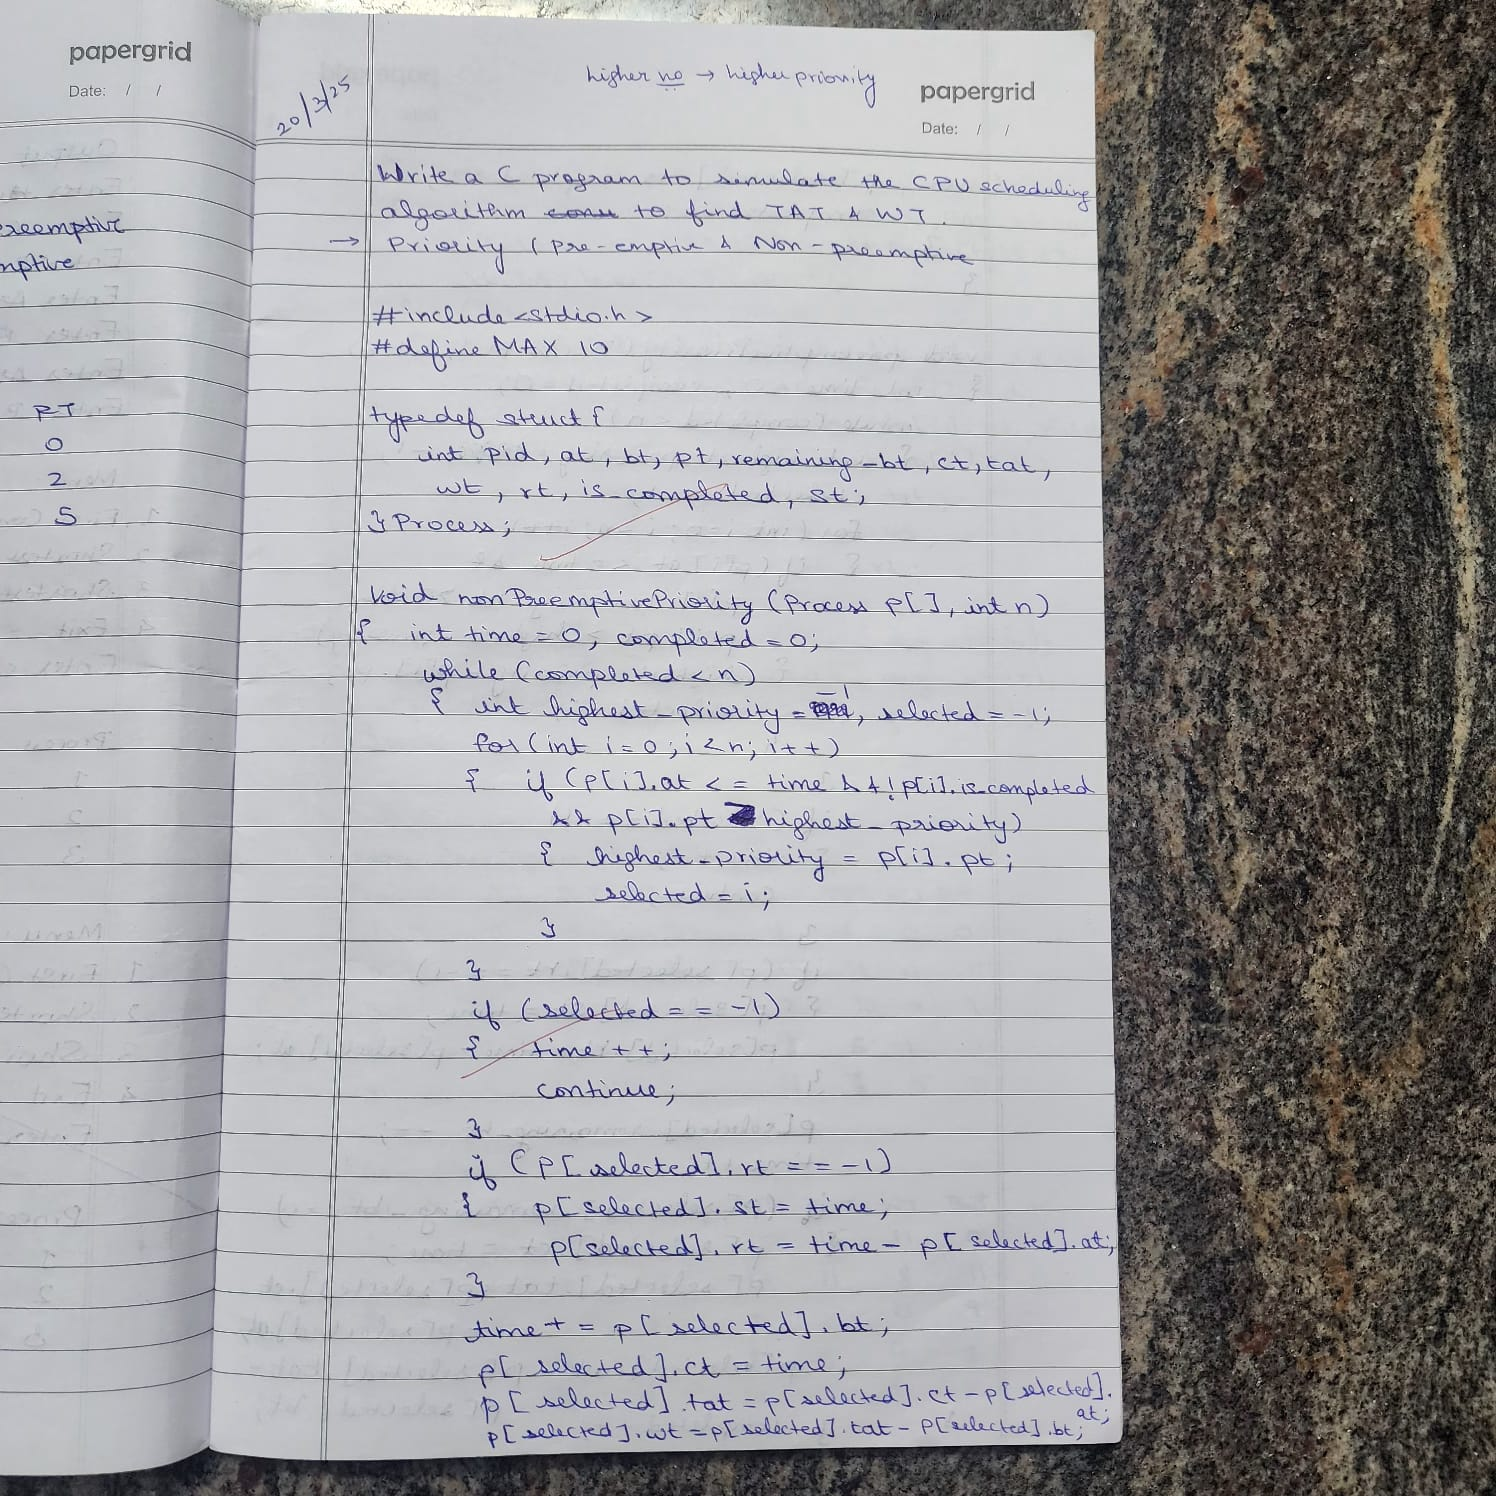 papergrid
Date: / /
reemptive
mptive
RT
0
2
5
20/3/25
higher no → higher priority
papergrid
Date: / /
Write a C program to simulate the CPU scheduling
algorithm to find TAT & WT.
→ Priority (pre-emptive & Non-preemptive
#include <stdio.h>
#define MAX 10
typedef struct {
int pid, at, bt, pt, remaining_bt, ct, tat,
wt, rt, is_completed, st;
} Process;
void nonPreemptivePriority (Process p[], int n)
{ int time = 0, completed = 0;
while (completed < n)
{ int highest_priority = -1, selected = -1;
for (int i = 0; i < n; i++)
{ if (p[i].at <= time && !p[i].is_completed
&& p[i].pt highest_priority)
{ highest_priority = p[i].pt;
selected = i;
}
}
if (selected == -1)
{ time ++;
continue;
}
if (p[selected].rt == -1)
{ p[selected].st = time;
p[selected].rt = time - p[selected].at;
}
time += p[selected].bt;
p[selected].ct = time;
p[selected].tat = p[selected].ct - p[selected].
at;
p[selected].wt = p[selected].tat - p[selected].bt;